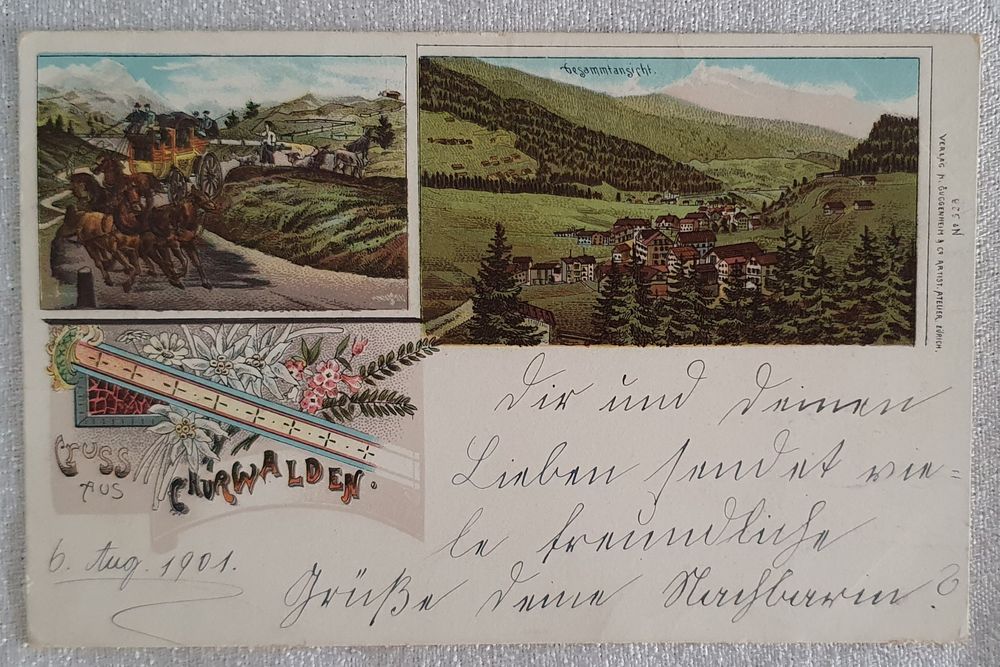 Gesammtansicht.
No 528
VERLAG M. GUGGENHEIM & Co ARTIST. ATELIER, ZÜRICH.
GRUSS
AUS
CHURWALDEN.
Dir und deinen
Lieben sendet vie=
le freundliche
Grüße deine Nachbarin
6. Aug. 1901.